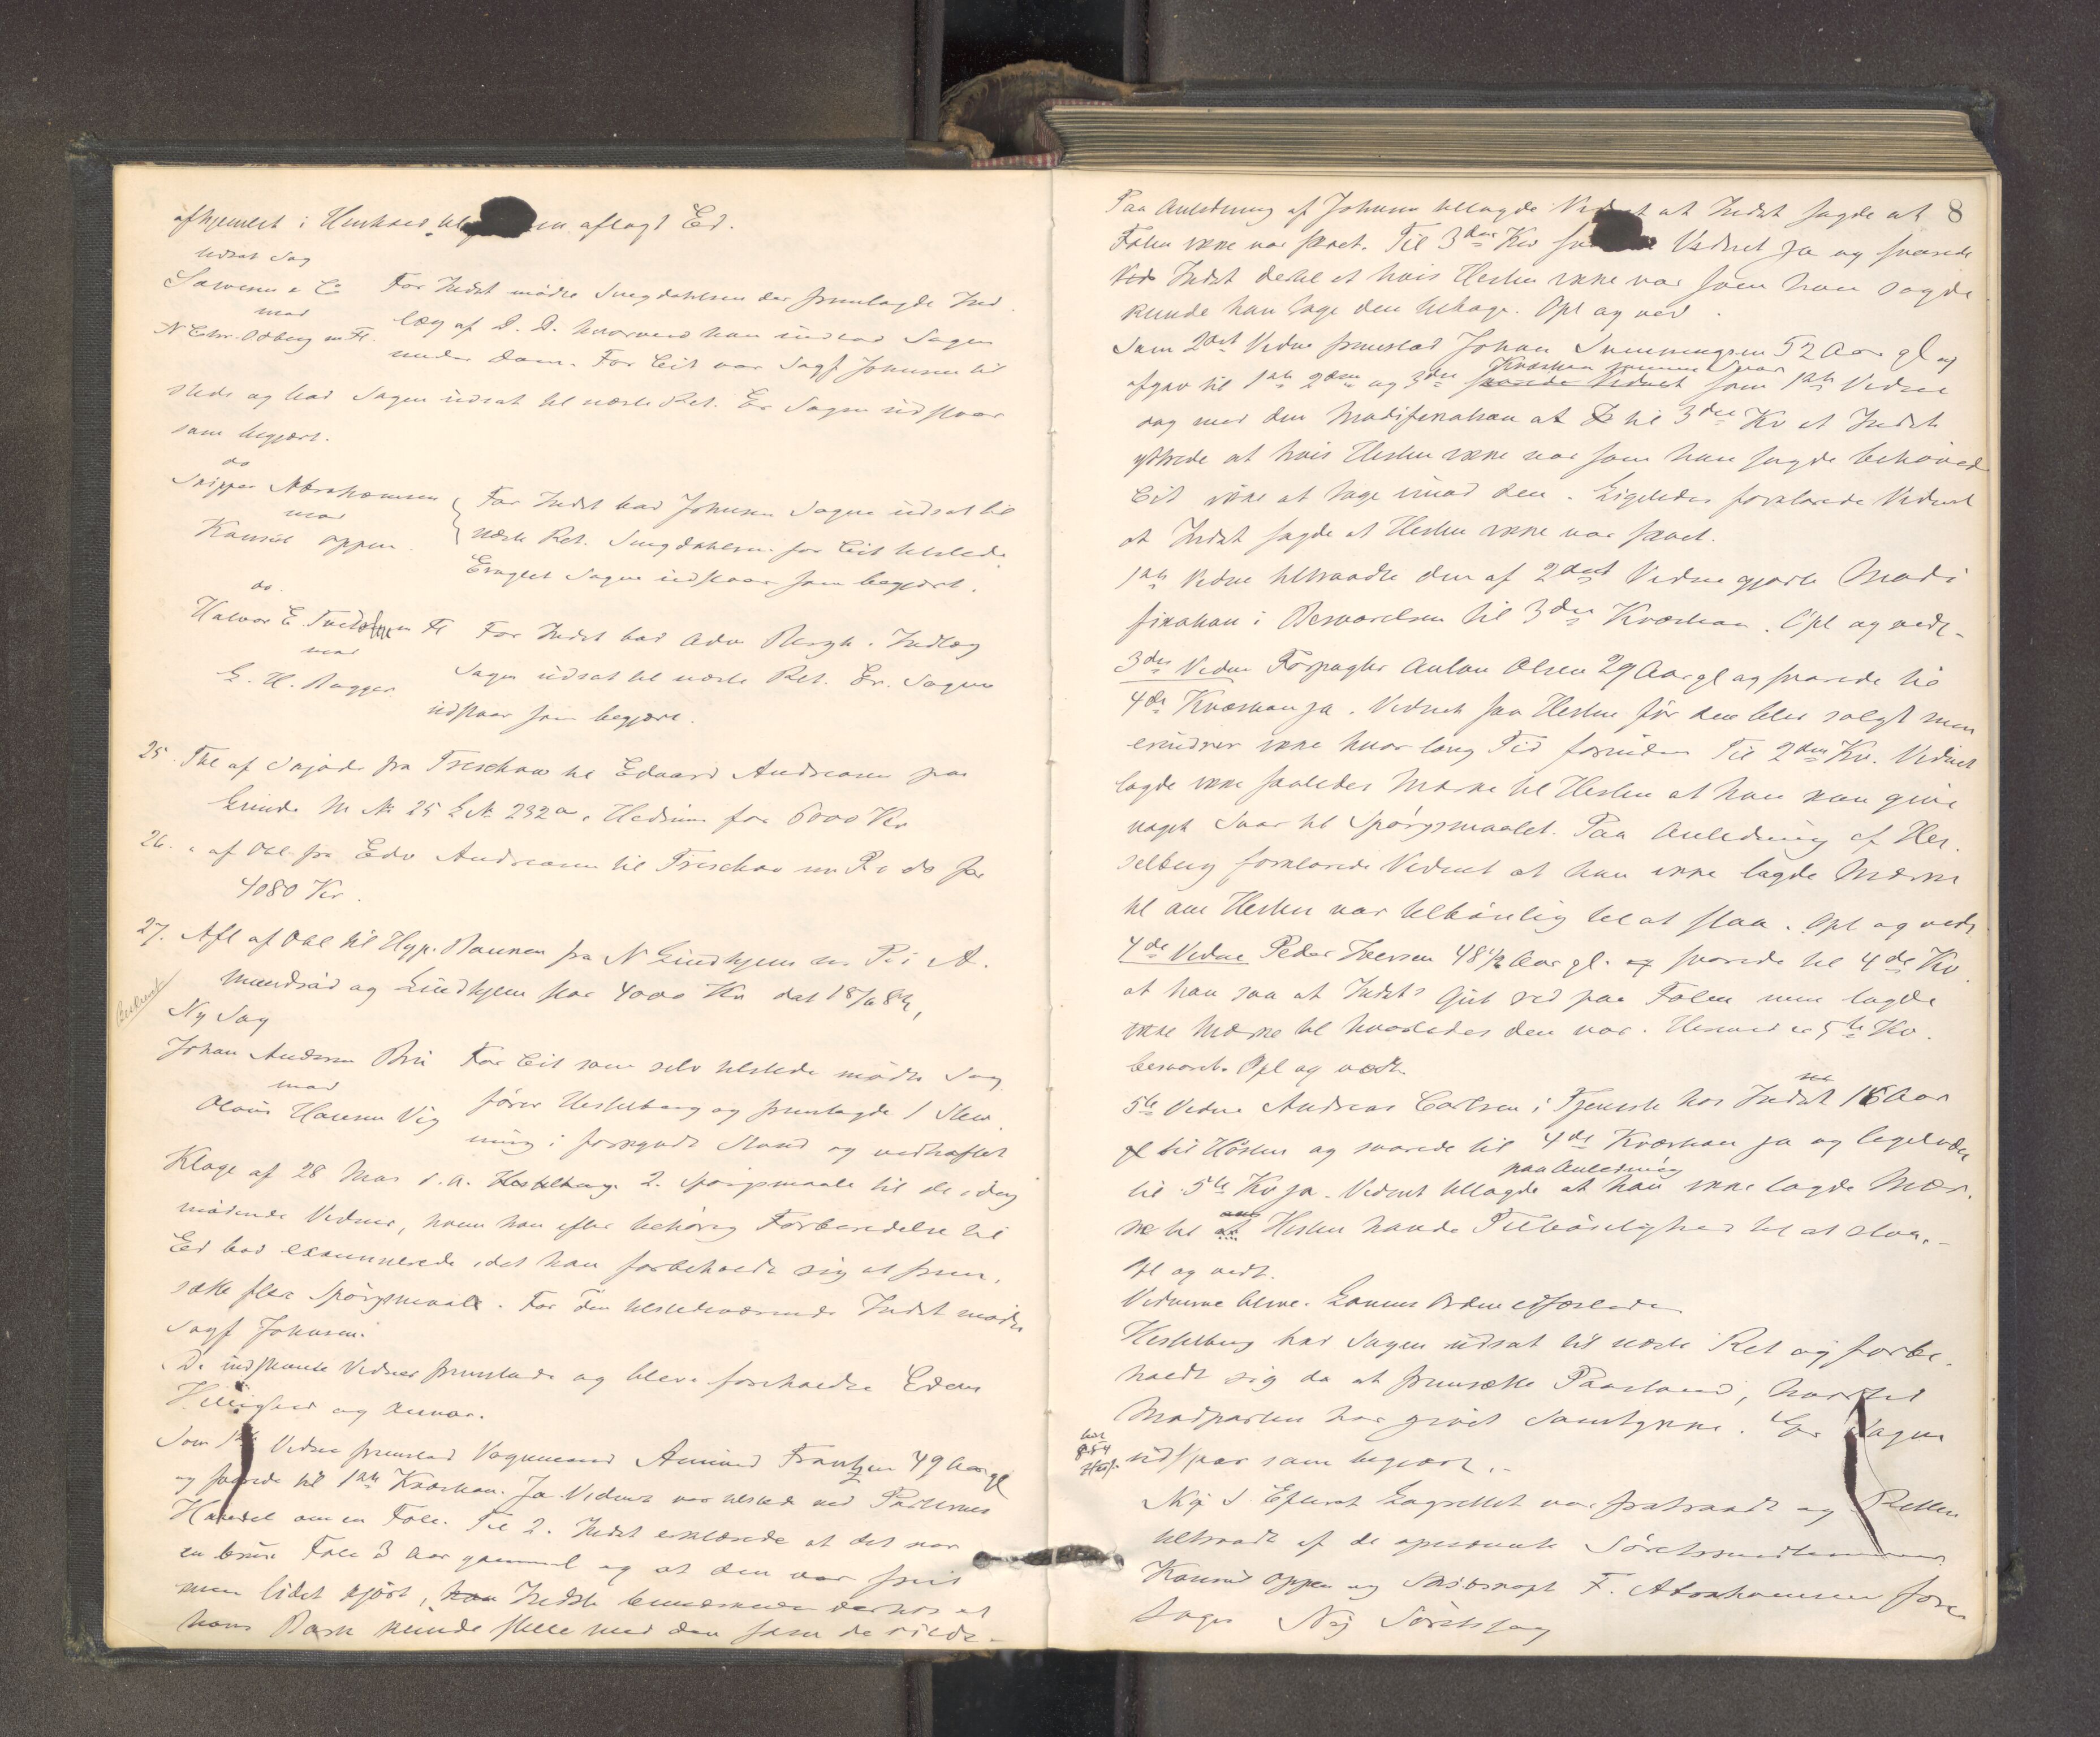 afhjemlet i Henhold til aflagt Ed.
Udsat Sag
Sørensen & Co For Indst mødte Svegdahlsen der fremlagde Ind
mod
N Chr. Odberg m Fl. læg af D. D. hvorved han indlod Sagen
under Dom. For Cit var Sagf Johnsen til
stede og bad Sagen udsat til næste Ret. Er Sagen udstaar
som begjært.
do
Skipper Abrahamsen For Indst bad Johnsen Sagen udsat til
mod
Konsul Oppen. Næste Ret. Svegdahlsen for Cit tilstede
Eragtet Sagen udstaar som begjært.
do.
Halvor E. m Fl For Indst bad Adv Bergh. Indlæg
mod
G. H. Bagger Sagen udsat til næste Ret. Er. Sagen
udstaar som begjært.
25. Thl af Skjøde fra Treschow til Edvard Andreasen paa
Grunde M No 25 L No 232a i Hedrum for 6000 Kr
26. " af Obl fra Edv Andreasen til Treschow m P i do for
4080 Kr.
27. Afl af Obl til Hyp. Banken fra N Lindhjem m P i A.
mundrød og Lindhjem stor 4000 Kr dat
Beskrevet
Ny Sag
Johan Andersen Bru For Cit som selv tilstede mødte Sag
mod
Olaus Hansen Vig fører Hesselberg og fremlagde 1 Stev
ning i forkyndt Stand og vedhæftet
Klage af 28 Mar d. A. Hesselberg 2. Spørgsmaale til de idag
mødende Vidner, hvem han efter behørig Forberedelse til
Ed bad examinerede idet han forbeholdt sig at frem,
sætte flere Spørgsmaale. For den tilstedeværende Indst mødte
Sagf Johnsen.
De indstevnte Vidner fremstode og bleve foreholdte Edens
Hellighed og Ansvar.
Som 1ste Vidne fremstod Vognmand Amund Frantzen 49 Aar gl
og svarede til 1ste Kvæstion. Ja Vidnet var tilstede ved Parternes
Handel om en Fole. Til 2. Indst erklærede at det var
en brun Fole 3 Aar gammel og at den var from
men lidet kjørt, han Indst bemærkede derhos at
hans Barn kunde stelle med den som de vilde.
8
Paa Anledning af Johnsen tillagde Vidnet at Indst sagde at
Folen ikke var skoet. Til 3die Kv Vidnet ja og svarede
Vid Indst dertil at hvis Hesten ikke var som han sagde
kunde han tage den tilbage. Opl og ved.
Som 2det Vidne fremstod Johan Simmingsen 52 Aar gl og
Kvæstion samme Svar
afgav til 1ste 2den og 3die svarede Vidnet som 1ste Vidne
dog med den Modifikation at D til 3die Kv at Indst
yttrede at hvis Hesten ikke var som han sagde behøvede
Cit ikke at tage imod den. Ligeledes forklarede Vidnet
at Indst sagde at Hesten ikke var skoet.
1ste Vidne tiltraadte den af 2det Vidne gjorte Modi
fikation i Besvarelsen til 3die Kvæstion. Opl og vedt.
3die Vidne Forpagter Anton Olsen 29 Aar gl og svarede til
4de Kvæstion ja. Vidnet saa Hesten før den blev solgt men
erindrer ikke hvor lang Tid forinden Til 2den Kv. Vidnet
lagde ikke saaledes Mærke til Hesten at han kan give
noget Svar til Spørgsmaalet. Paa Anledning af Hes,
selberg forklarede Vidnet at han ikke lagde Mærke
til om Hesten var tilbøielig til at slaa. Opl og vedt
4de Vidne Peder Iversen 48½ Aar gl. og svarede til 4de Kv
at han saa at Indsts Gut red paa Folen men lagde
ikke Mærke til hvorledes den var. Hermed er 5te Kv.
besvaret. Opl og vedt.
5te Vidne Andreas Carlsen i Tjeneste hos Indst 16 Aar
gl til Høsten og svarede til 4de Kvæstion ja og ligeledes
paa Anledning
til 5te Kv ja. Vidnet tillagde at han ikke lagde Mær,
ke til at Hesten havde Tilbøielighed til at slaa.
Opl og vedt.
Vidnerne bleve. Lovens Orden
Hesselberg bad Sagen udsat til næste Ret og forbe,
holdt sig da at fremsætte Paastand, hvortil
Modparten har givet Samtykke. Er Sagen
udstaar som begjært.
Ny S. Efterat Lagrettet var fratraadt og Retten
tiltraadt af de opnævnte Søretsmedlemmer
Konsul Oppen og Skibskapt F. Abrahamsen fore
toges Ny Søretssag